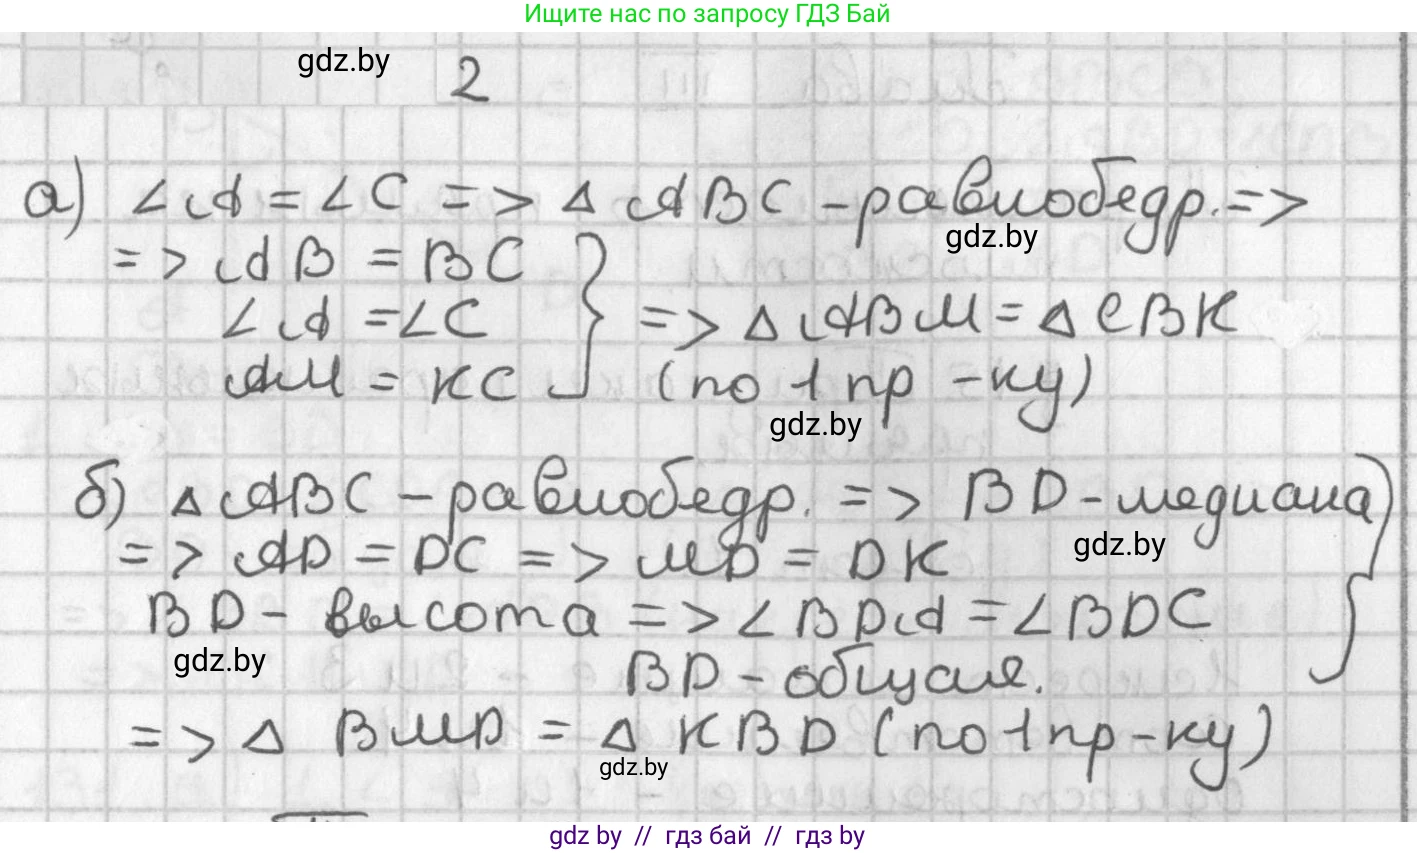 Ищите нас по запросу ГДЗ Бай
gdz.by
2
а) ∠A = ∠C => Δ ABC - равнобедр. =>
gdz.by
=> AB = BC
∠A = ∠C } => Δ ABM = Δ CBK
AM = KC (по 1 пр - ку)
gdz.by
б) Δ ABC - равнобедр. => BD - медиана
gdz.by
=> AD = DC => MD = DK
BD - высота => ∠BDA = ∠BDC }
gdz.by
BD - общая.
=> Δ BMD = Δ KBD (по 1 пр - ку)
gdz.by
gdz by // гдз бай // гдз by